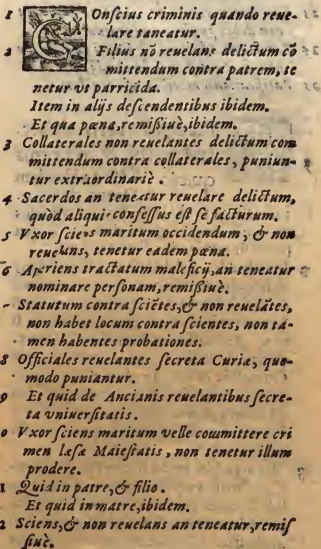 1 COnſcius criminis quando reue-
lare taneatur.
2 Filius nõ reuelans delictum cõ
mittendum contra patrem, te
netur vt parricida.
Item in alijs deſcendentibus ibidem.
Et qua pœna, remißiuè, ibidem.
3 Collaterales non reuelantes delictum com
mittendum contra collaterales, puniun-
tur extraordinariè.
4 Sacerdos an teneatur reuelare delictum,
quòd aliqui confeſſus eſt ſe facturum.
5 Vxor ſciens maritum occidendum, & non
reuelans, tenetur eadem pœna.
6 Aperiens tractatum maleficij, an teneatur
nominare perſonam, remißiuè.
- Statutum contra ſciẽtes, & non reuelãtes,
non habet locum contra ſcientes, non ta-
men habentes probationes.
8 Officiales reuelantes ſecreta Curiæ, quo-
modo puniantur.
9 Et quid de Ancianis reuelantibus ſecre-
ta vniuerſitatis.
0 Vxor ſciens maritum velle committere cri
men læſæ Maieſtatis, non tenetur illum
prodere.
1 Quid in patre, & filio.
Et quid in matre, ibidem.
2 Sciens, & non reuelans an teneatur, remiſ
ſiuè.